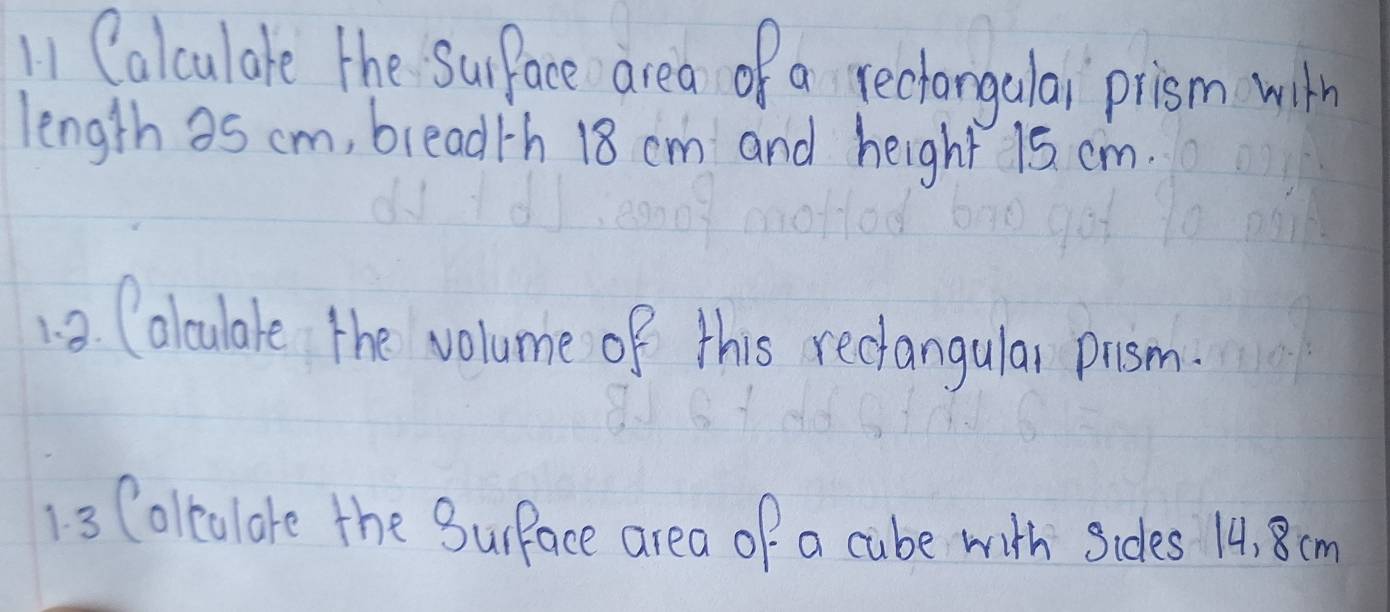 1.1 Calculate the surface area of a rectangular prism with
length 25 cm, breadth 18 cm and height 15 cm.
1.2. Calculate the volume of this rectangular prism.
1.3 Calculate the Surface area of a cube with sides 14,8 cm